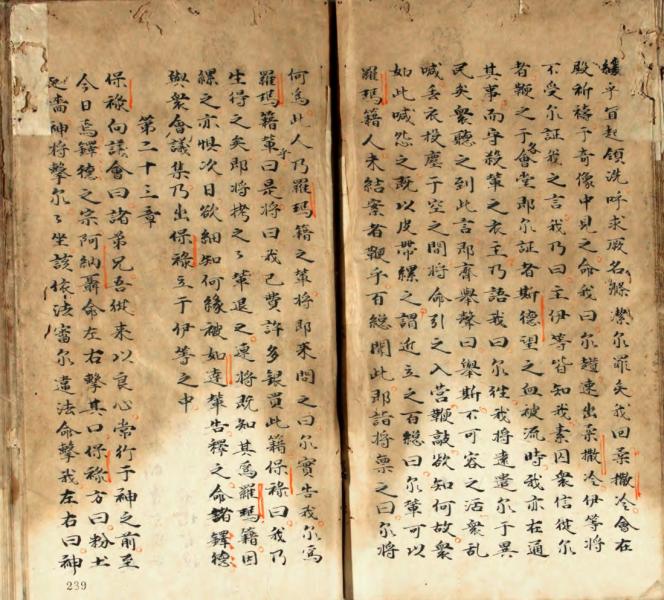 緩乎盲起領洗呼求厥名滌潔尔罪矣我回柔撒冷會在
殿祈禱于奇像中見之命我曰尔趕速出柔撒冷伊等將
不受尔証我之言我乃曰主伊等皆知我素囚衆信從尔
者鞭之于各會堂即尔証者斯德望之血被流時我亦在通
其事而守殺輩之衣主乃語我曰尔徃我將遠遣尔于異
民矣衆聽之到此言即齊舉聲曰舉斯不可容之活衆乱
喊丢衣投塵于空之間將命引之入營鞭敲欲知何故衆
如此喊怨之既以皮帶縲之謂近立之百緫曰尔輩可以
羅瑪籍人未結案者鞭乎百緫聞此即詣將禀之曰尔將
何為此人乃羅瑪籍之輩將即来問之曰尔實告我尔為
羅瑪籍輩乎曰是將曰我已費許多銀買此籍保祿曰我乃
生得之矣即將拷之之輩退之連將既知其為羅瑪籍因
縲之亦惧次日欲細知何緣被如達輩告釋之命諸鐸德
與衆會議集乃出保祿立于伊等之中
第二十三章
保祿向議會曰諸弟兄吾從来以良心常行于神之前至
今日焉鐸德之宗阿納聶命左右擊其口保祿方曰粉土
墻神將擊尔尔坐該依法審尔違法命擊我左右曰神
239